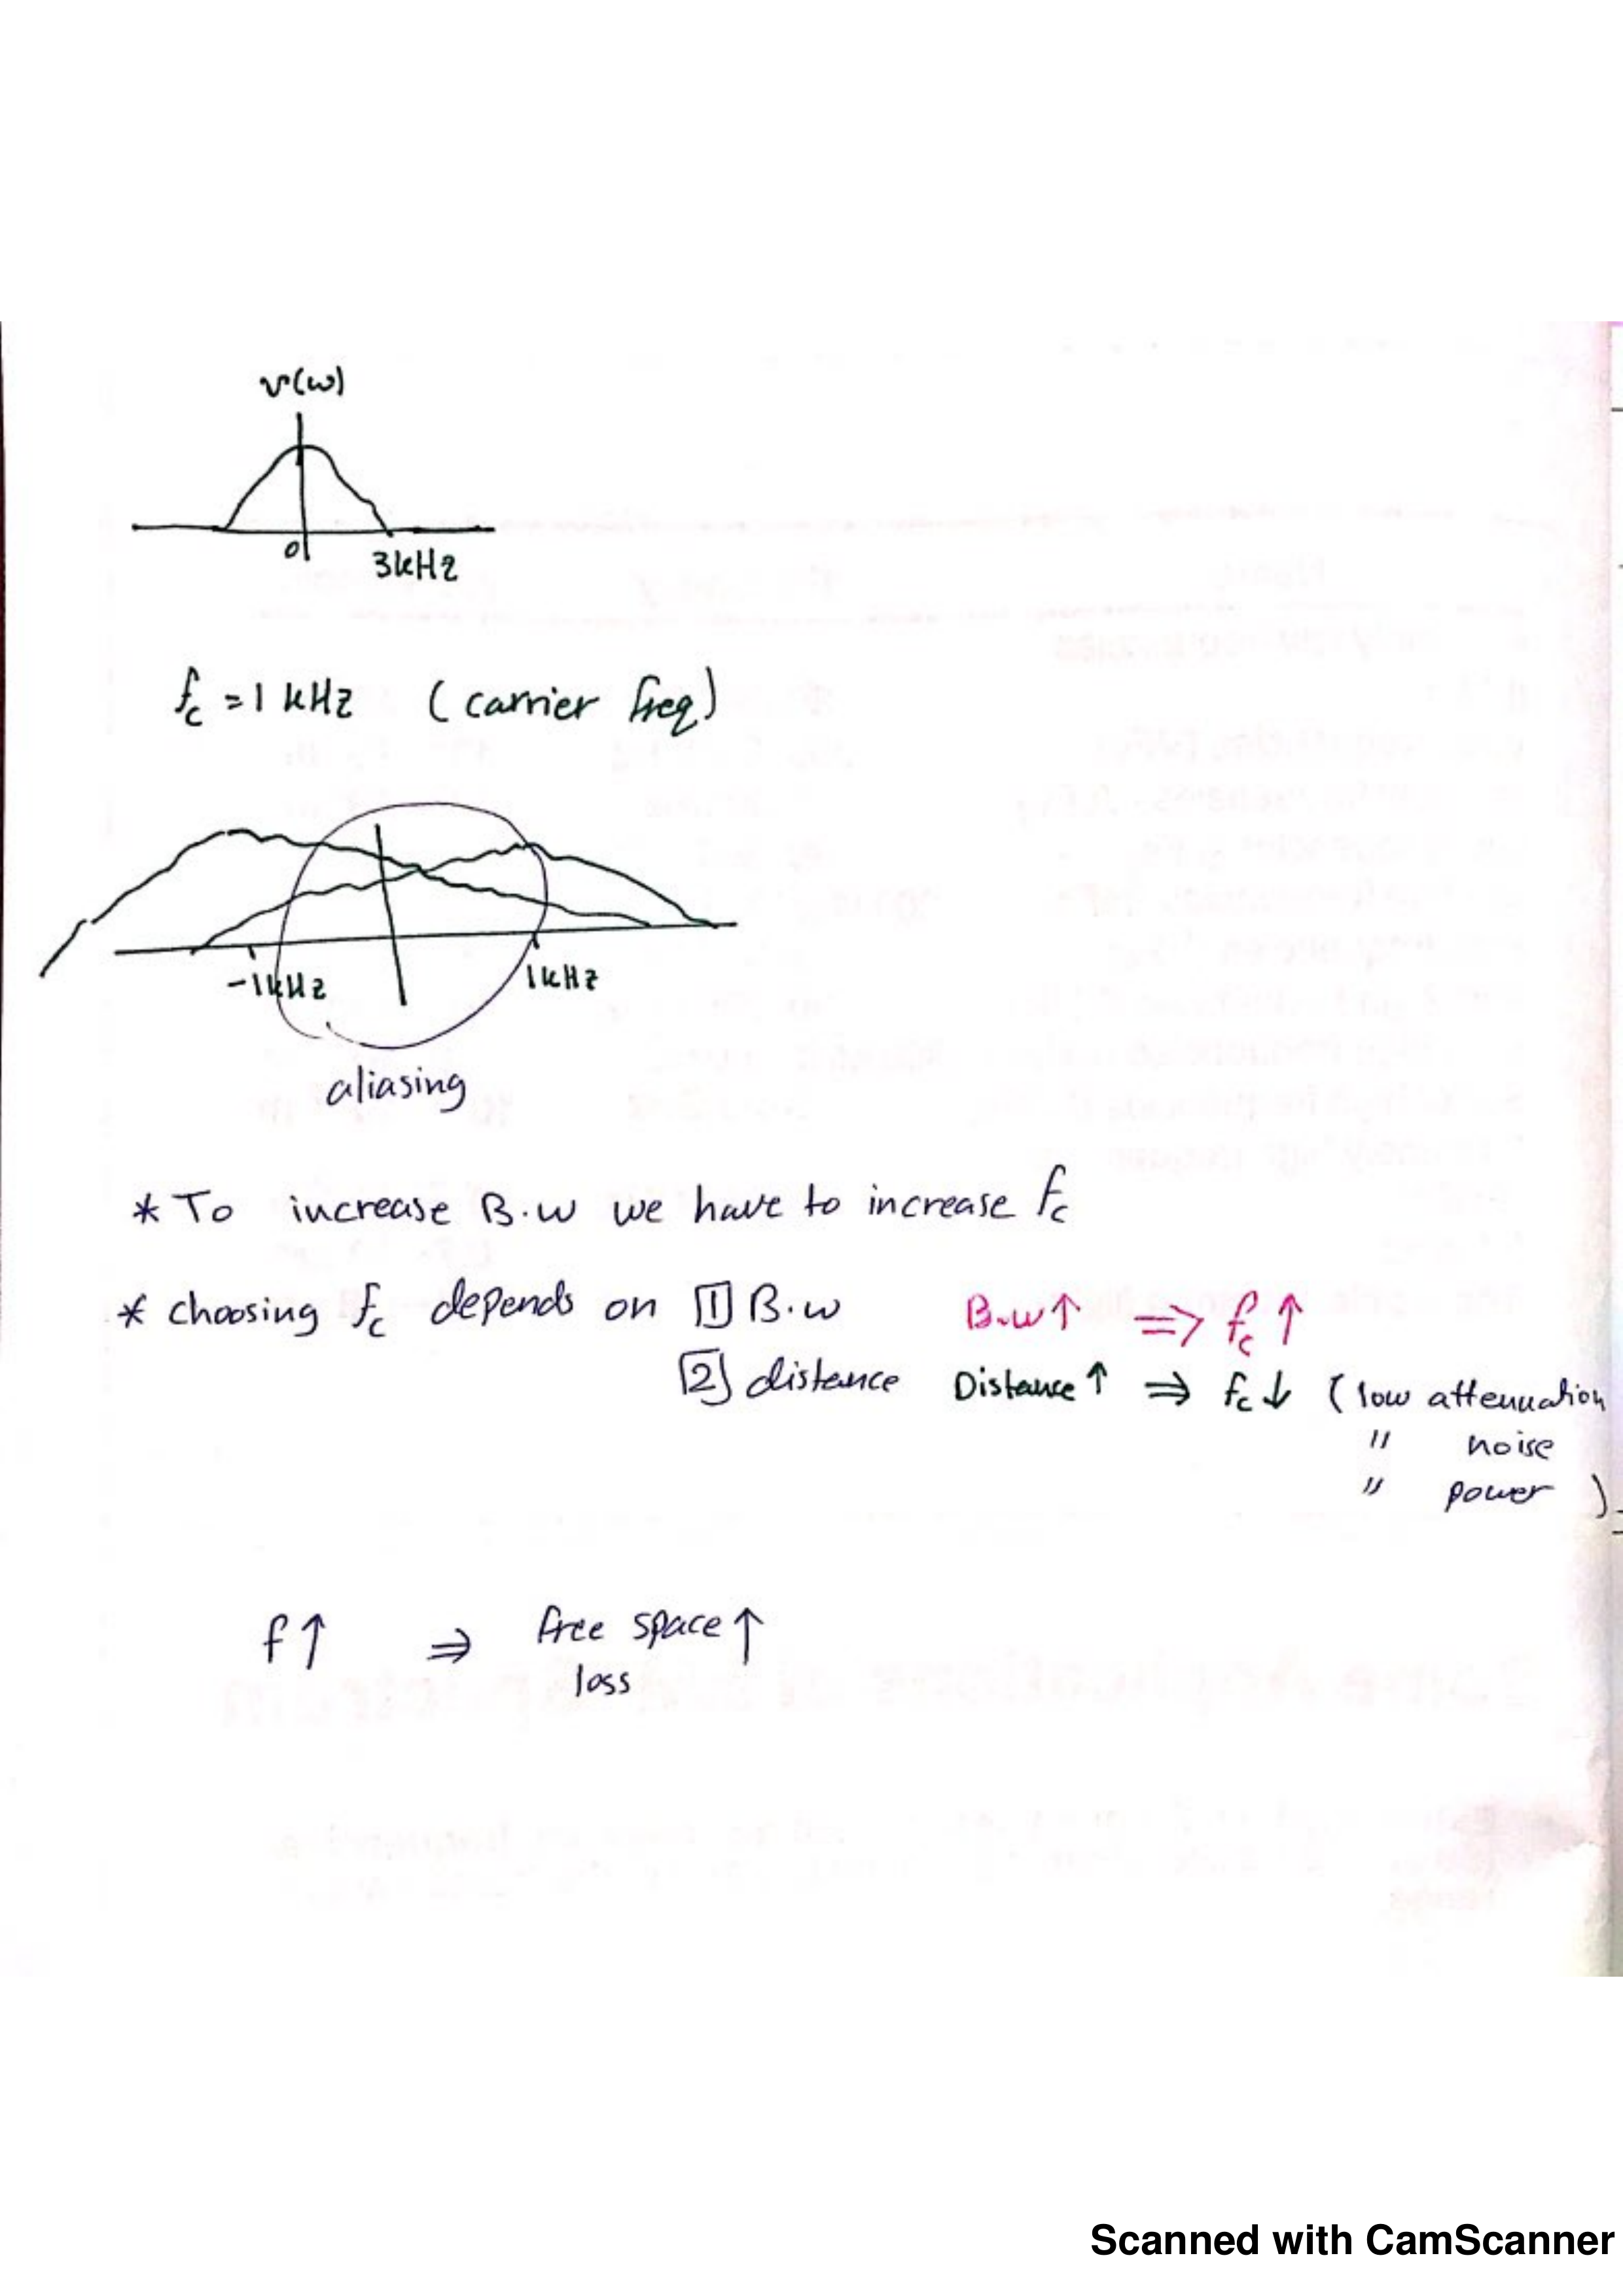 v(w)
0
3kHz
fc = 1 kHz (carrier freq)
-1kHz
1kHz
aliasing
* To increase B.w we have to increase fc
* choosing fc depends on [1] B.w B.w↑ => fc↑
[2] distance Distance↑ ⇒ fc↓ (low attenuation
" noise
" power )
f↑ ⇒ free space↑
loss
Scanned with CamScanner